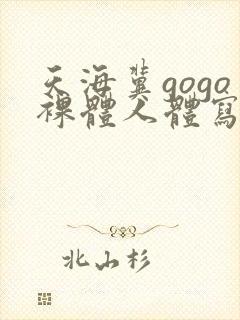 天海翼gogo
裸體人體寫
北山杉